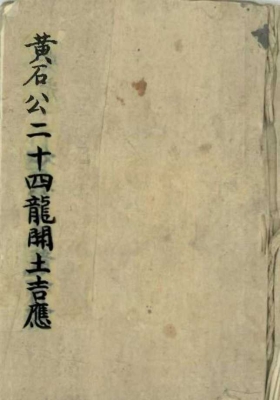 黄石公二十四龍開土吉應